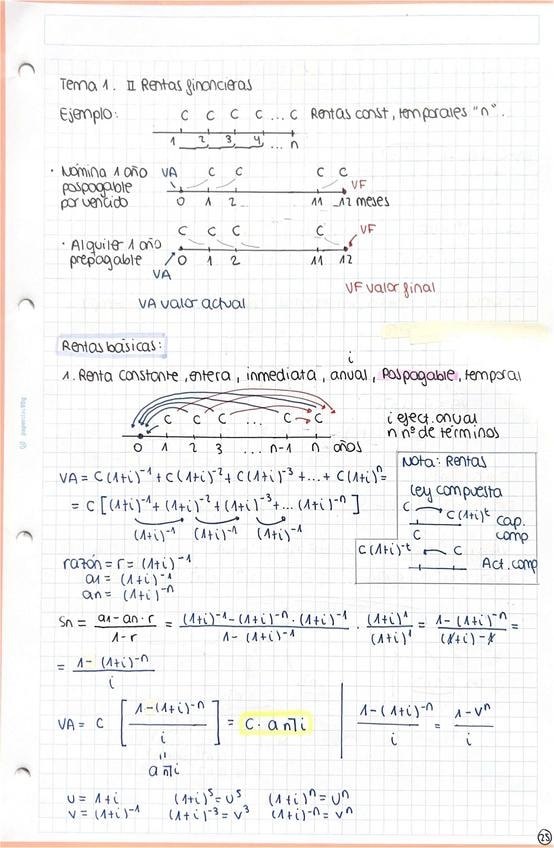 Tema 1. II Rentas financieras
Ejemplo: C C C C ... C Rentas const, temporales "n".
1 2 3 4 ... n
· Nómina 1 año pospagable por vencido
VA C C C C VF
0 1 2 ... 11 12 meses
· Alquiler 1 año prepagable
C C C C VF
0 1 2 11 12
VA
VA valor actual
VF valor final
Rentas básicas:
i
1. Renta constante, entera, inmediata, anual, pospagable, temporal
C C C ... C C
0 1 2 3 ... n-1 n años
i efect. anual
n nº de términos
VA = C(1+i)⁻¹ + C(1+i)⁻² + C(1+i)⁻³ + ... + C(1+i)ⁿ =
= C [(1+i)⁻¹ + (1+i)⁻² + (1+i)⁻³ + ... (1+i)⁻ⁿ]
(1+i)⁻¹ (1+i)⁻¹ (1+i)⁻¹
Nota: Rentas
Ley compuesta
C C(1+i)ᵗ cap. comp
C
C(1+i)⁻ᵗ C Act. comp
razón = r = (1+i)⁻¹
a1 = (1+i)⁻¹
an = (1+i)⁻ⁿ
Sn = (a1 - an · r)/(1 - r) = ((1+i)⁻¹ - (1+i)⁻ⁿ · (1+i)⁻¹)/(1 - (1+i)⁻¹) · (1+i)¹/(1+i)¹ = (1 - (1+i)⁻ⁿ)/((1+i) - 1) =
= (1 - (1+i)⁻ⁿ)/i
VA = C [(1-(1+i)⁻ⁿ)/i] = C · an⌉i
(1-(1+i)⁻ⁿ)/i = (1-vⁿ)/i
"
an⌉i
u = 1+i (1+i)⁵ = u⁵ (1+i)ⁿ = uⁿ
v = (1+i)⁻¹ (1+i)⁻³ = v³ (1+i)⁻ⁿ = vⁿ
25